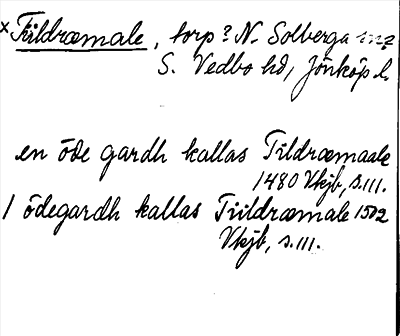 × Tiildræmale, torp? N. Solberga sn?
S. Vedbo hd, Jönköp l.
en öde gardh kallas Tildræmaale
1480 Vkjb, s. 111.
1 ödegardh kallas Tiildræmale 1502
Vkjb, s. 111.